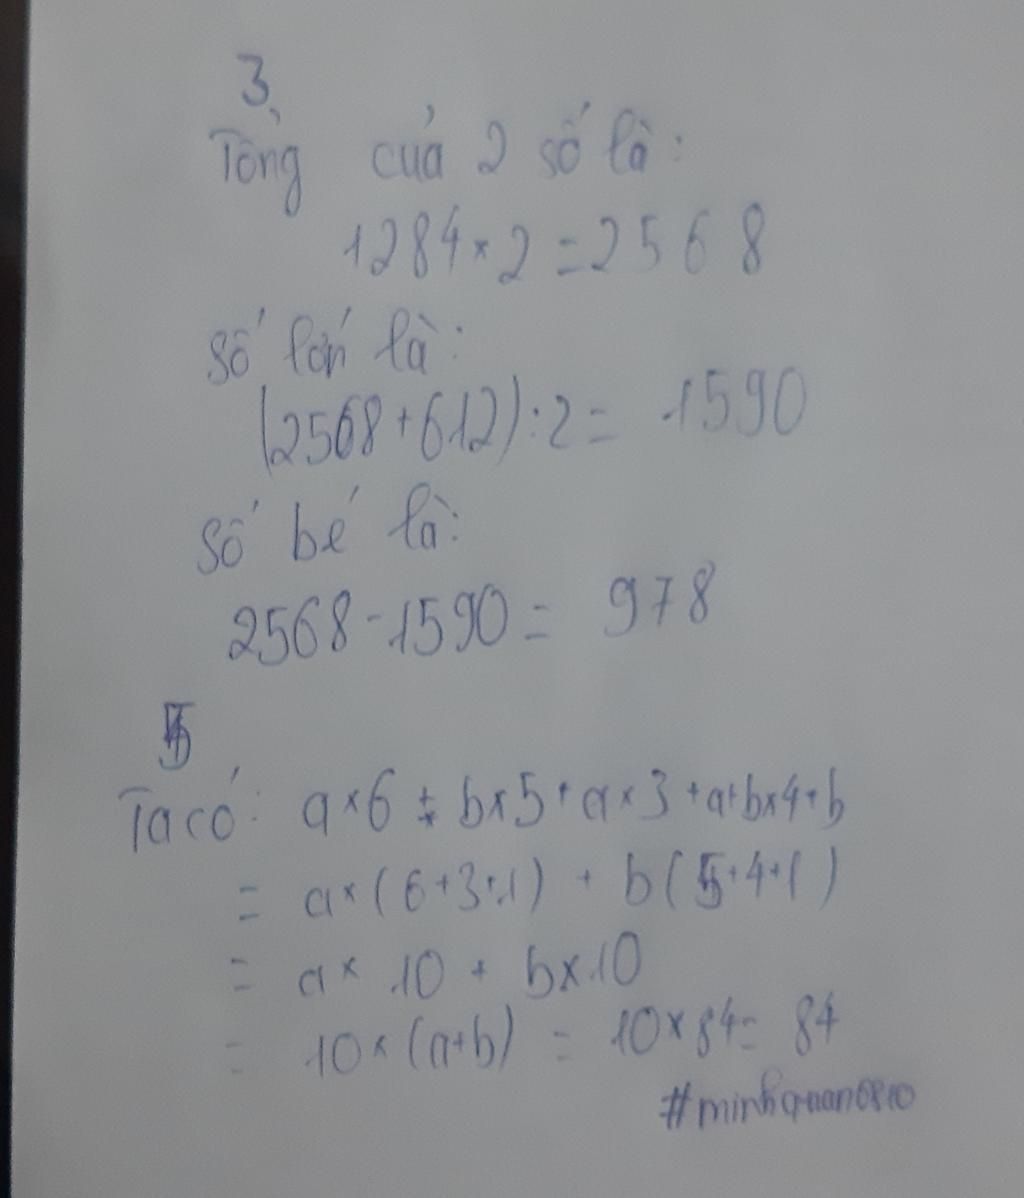 3,
Tổng của 2 số là:
1284 × 2 = 2568
số lớn là:
(2568 + 612) : 2 = 1590
số bé là:
2568 - 1590 = 978
5
Ta có: a × 6 + b × 5 + a × 3 + a + b × 4 + b
= a × (6 + 3 + 1) + b (5 + 4 + 1)
= a × 10 + b × 10
= 10 × (a + b) = 10 × 84 = 84
#minhquan6810